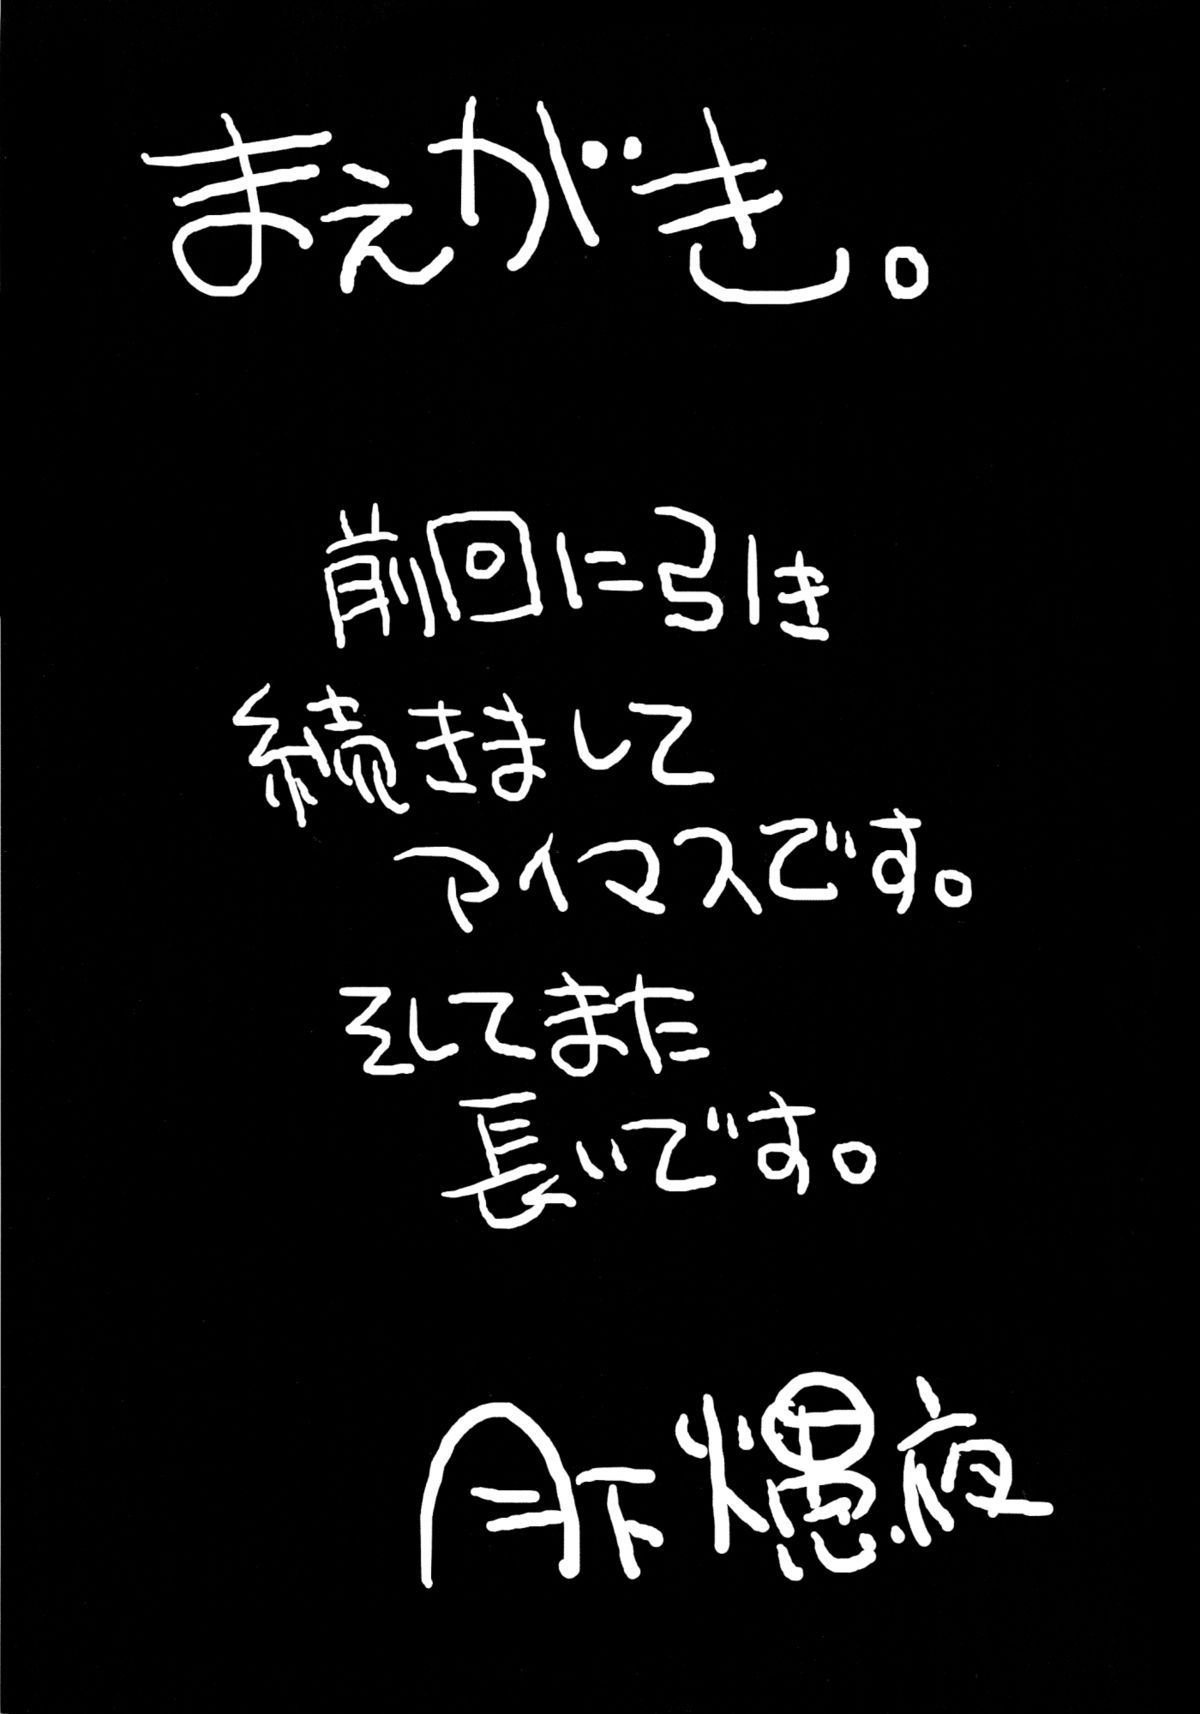 まえがき。
前回に引き
続きまして
アイマスです。
そしてまた
長いです。
月下 夜